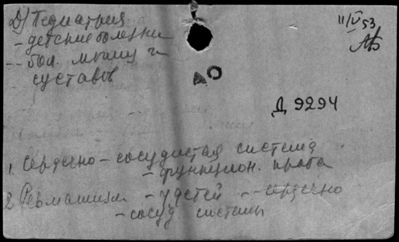 Д) Педиатрия
11/V 53
- детские болезни
АБ
- бол. мышц и
суставов
АО
Д 9294
1. Сердечно-сосудистая система
- функцион. проба
2. Ревматизм - у детей -- сердечно
- сосуд системы